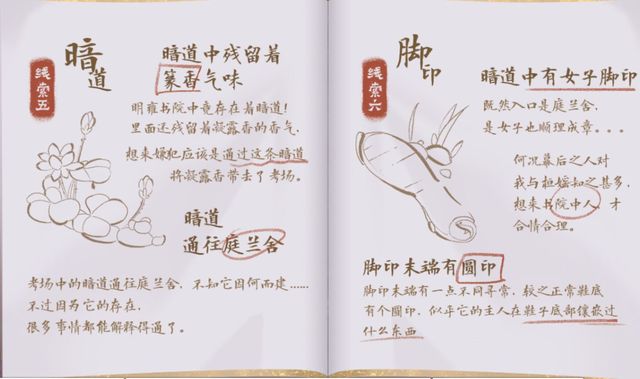 线索五
暗道
暗道中残留着
篆香气味
明雍书院中竟存在着暗道!
里面还残留着凝露香的香气,
想来嫌犯应该是通过这条暗道
将凝露香带去了考场。
暗道
通往庭兰舍
考场中的暗道通往庭兰舍,不知它因何而建……
不过因为它的存在,
很多事情都能解释得通了。
线索六
脚印
暗道中有女子脚印
既然入口是庭兰舍,
是女子也顺理成章。。。
何况幕后之人对
我与桓嬬知之甚多,
想来书院中人,才
合情合理。
脚印末端有圆印
脚印末端有一点不同寻常,较之正常鞋底
有个圆印,似乎它的主人在鞋子底部镶嵌过
什么东西